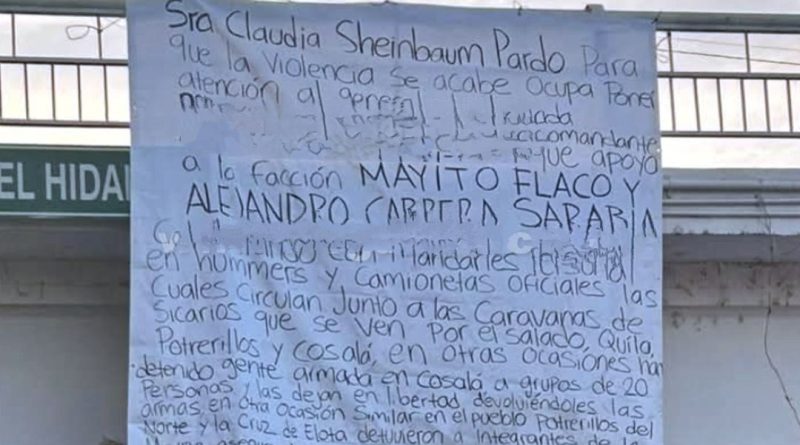 Sra Claudia Sheinbaum Pardo Para
que la Violencia Se acabe Ocupa Poner
atención al
comandante
que apoya
EL HIDA
a la facción MAYITO FLACO Y
ALEJANDRO CABRERA SARABIA
mandarles Personal
en hummers y Camionetas oficiales las
Cuales Circulan Junto a las Caravanas de
Sicarios que se ven Por el Salado, Quila,
Potrerillos y Cosalá, en otras ocasiónes han
detenido gente armada en Cosalá a grupos de 20
Personas y las dejan en libertad devoluiéndoles las
armas, en otra ocasión Similar en el pueblo Potrerillos del
Norte y la Cruz de Elota detuvieron a integrantes de